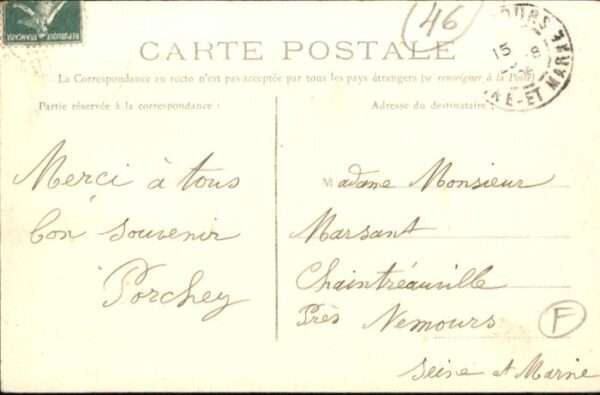 46
REPUBLIQUE FRANÇAISE
CARTE POSTALE
La Correspondance au recto n'est pas acceptée par tous les pays étrangers (se renseigner à la Poste)
Partie réservée à la correspondance :
Adresse du destinataire :
Merci à tous
bon souvenir
Porchey
Madame Monsieur
Marsant
Chaintréauville
Près Nemours
Seine et Marne
F
15 8
ET MARNE